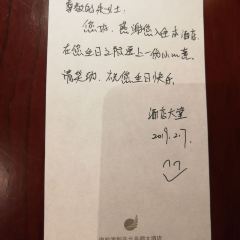 尊敬的 女士:
您好,感谢您入住本酒店
在您生日之际送上一份小心意
请笑纳,祝您生日快乐
酒店大堂
2019.2.7.